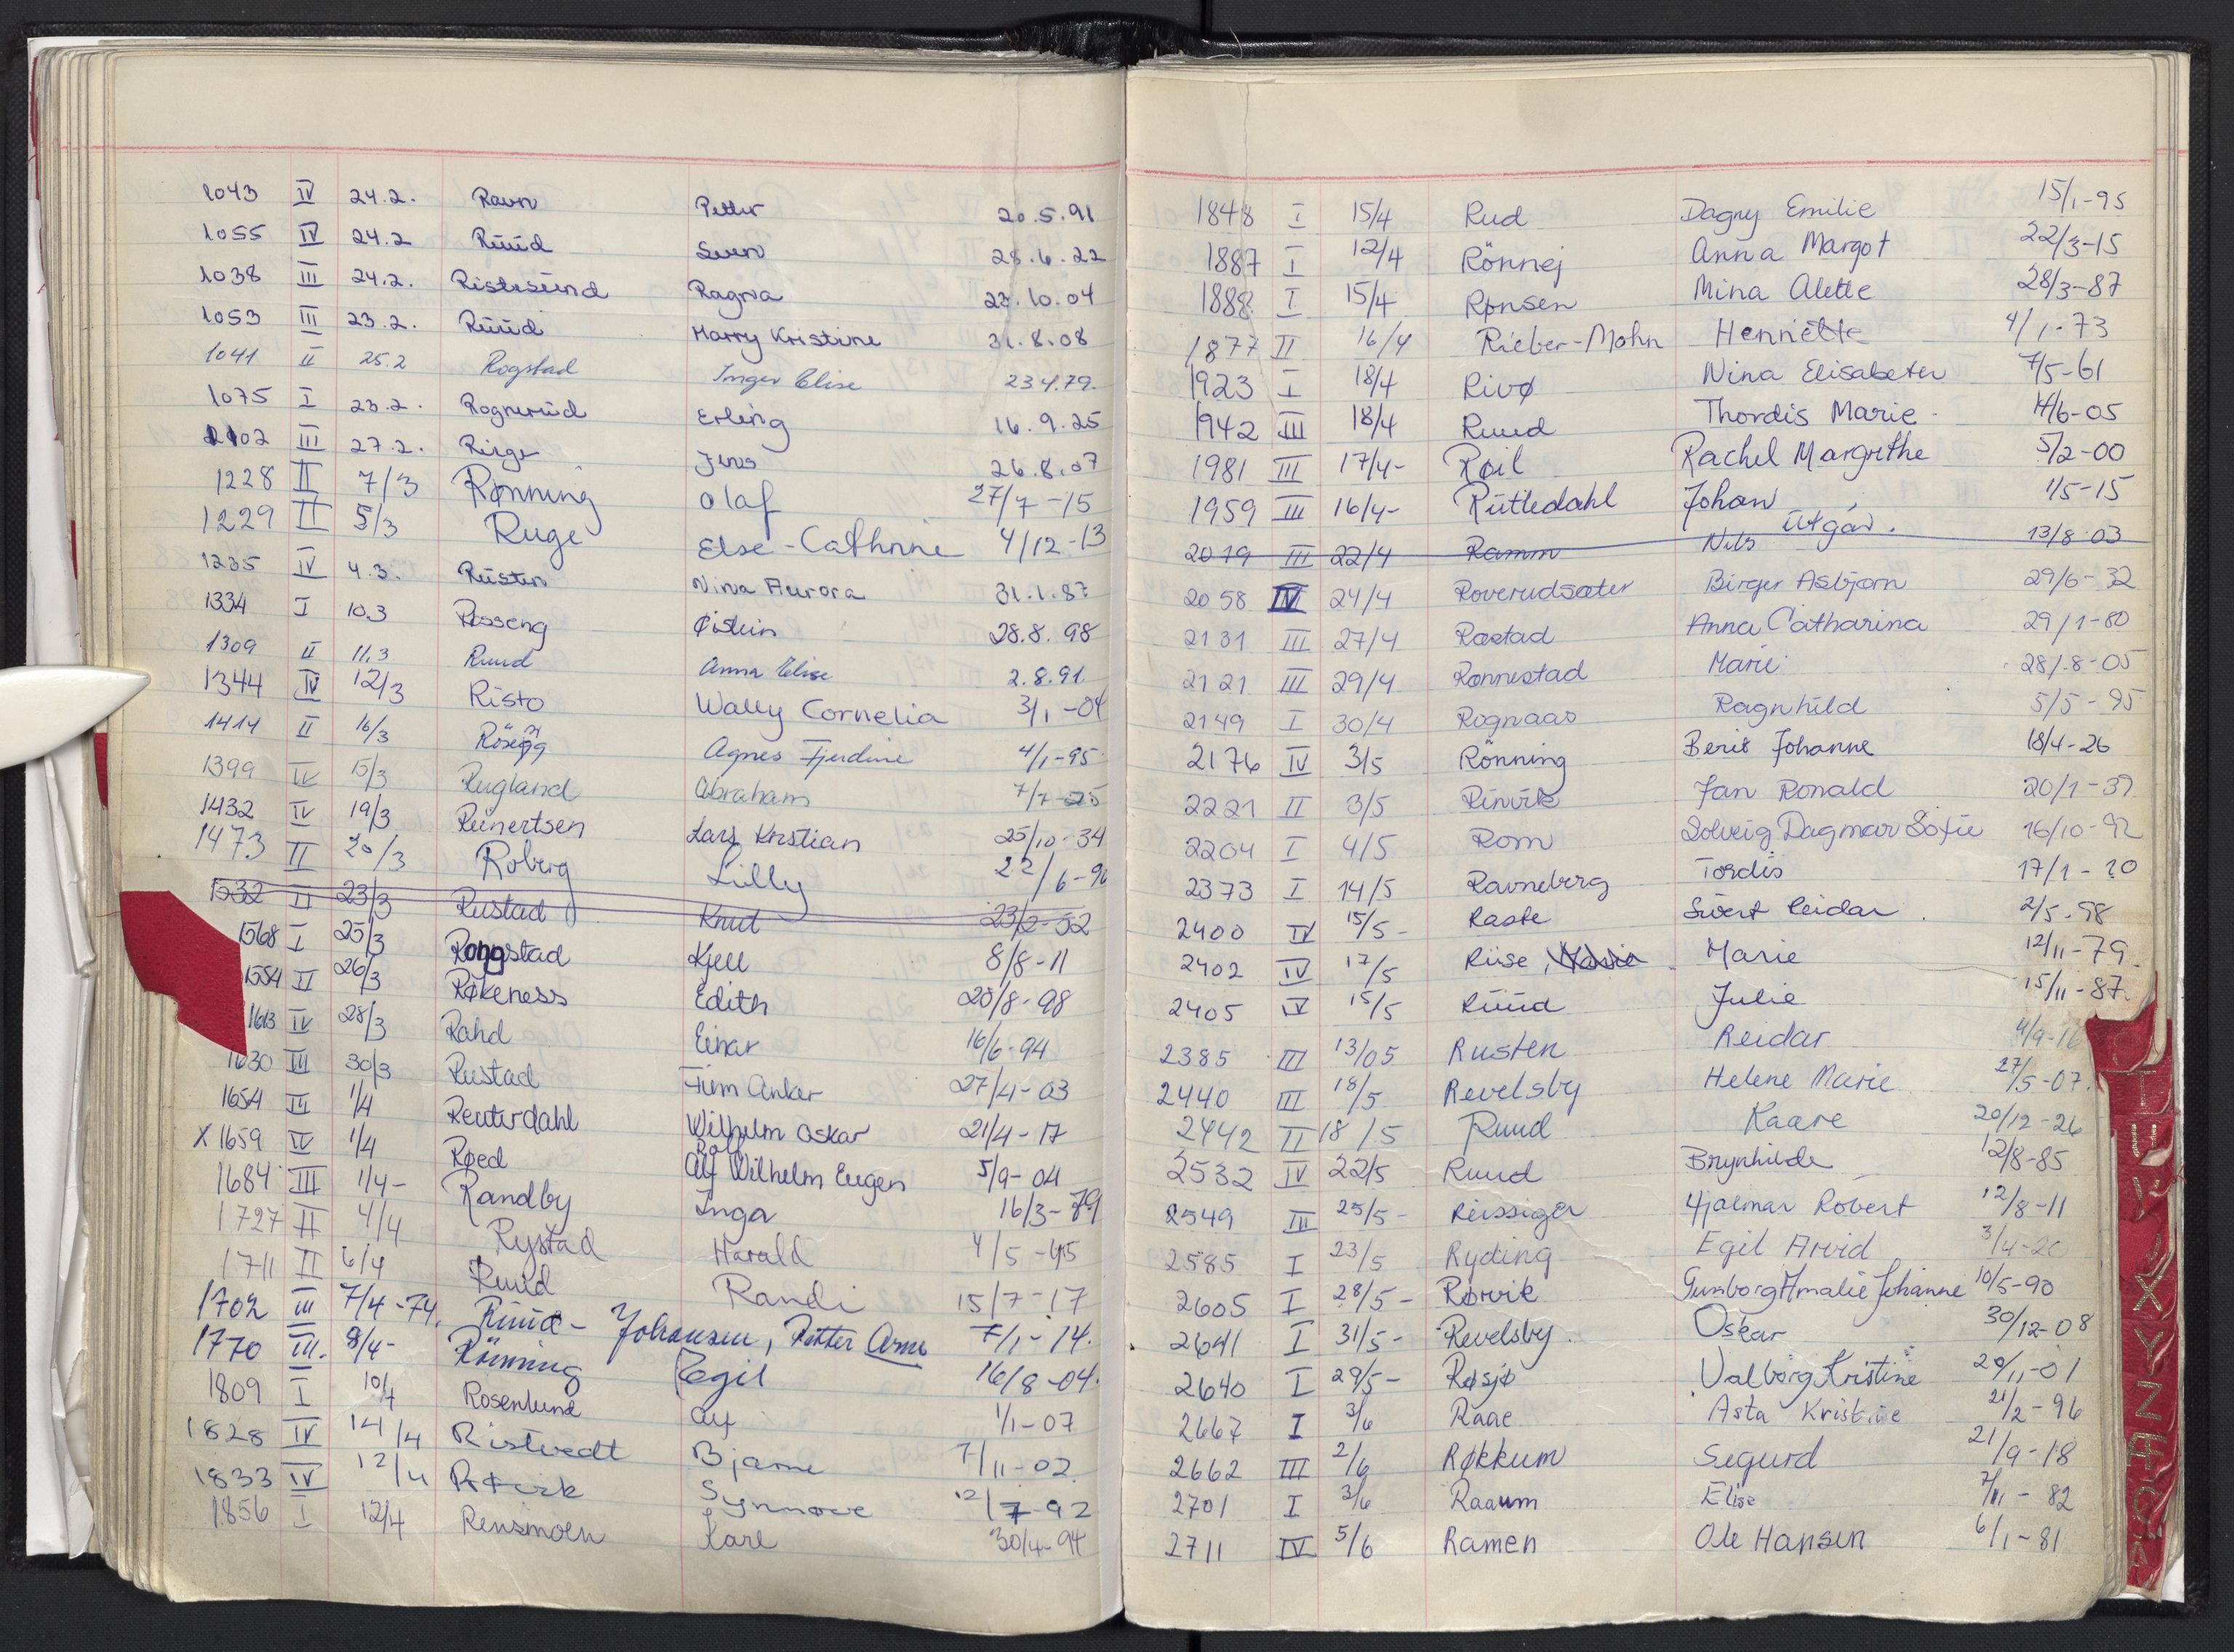 1043 IV 24.2. Ravn Petter 20.5.91
1055 IV 24.2 Ruud Svein 28.6.22
1038 III 24.2. Ristesund Ragna 23.10.04
1053 III 23.2. Ruud Harry Kristine 31.8.08
1041 II 25.2 Rogstad Inger Elise 23.4.79.
1075 I 23.2. Rognerud Erling 16.9.25
1102 III 27.2. Ringe Jens 26.8.07
1228 II 7/3 Rønning Olaf 27/7-15
1229 II 5/3 Ruge Else-Cathrine 4/12-13
1235 IV 4.3. Rusten Nina Aurora 31.1.87
1334 I 10.3 Røsseng Øistein 28.8.98
1309 II 11.3 Ruud Anna Elise 2.8.91.
1344 IV 12/3 Risto Wally Cornelia 3/1-04
1414 II 16/3 Rösegg Agnes Fjerdine 4/1-95
1399 IV 15/3 Rugland Abraham 7/7-25
1432 IV 19/3 Reinertsen Lars Kristian 25/10-34
1473 II 20/3 Roberg Lilly 22/6-90
1532 II 23/3 Rustad Knud 23/2-52
1568 I 25/3 Rongstad Kjell 8/8-11
1584 II 26/3 Røkeness Edith 20/8-98
1613 IV 28/3 Rahd Einar 16/6-94
1630 III 30/3 Rustad Finn Anker 27/4-03
1654 III 1/4 Reuterdahl Wilhelm Oskar 21/4-17
X 1659 IV 1/4 Røed Rolf Alf Wilhelm Eugen 5/9-04
1684 III 1/4- Randby Inga 16/3-79
1727 II 4/4 Rystad Harald 4/5-45
1711 II 6/4 Ruud Randi 15/7-17
1702 III 7/4-74. Ruud-Johansen, Petter Arne 7/1-14.
1770 III. 8/4- Rönning Egil 16/8-04.
1809 I 10/4 Rosenlund Alf 1/1-07
1828 IV 14/4 Ristvedt Bjarne 7/11-02
1833 IV 12/4 Rørvik Synnøve 12/7-92
1856 I 12/4 Rensmoen Kare 30/4-94
1848 I 15/4 Rud Dagny Emilie 15/1-95
1887 I 12/4 Rönnej Anna Margot 22/3-15
1888 I 15/4 Rønsen Mina Alette 28/3-87
1877 II 16/4 Rieber-Mohn Henriette 4/1-73
1923 I 18/4 Rivø Nina Elisabeter 7/5-61
1942 III 18/4 Ruud Thordis Marie 14/6-05
1981 III 17/4- Røil Rachel Margrethe 5/2-00
1959 III 16/4- Rutledahl Johan 1/5-15
2019 III 22/4 Ramm Nils Utgår. 13/8-03
2058 IV 24/4 Roverudsæter Birger Asbjørn 29/6-32
2131 III 27/4 Røstad Anna Catharina 29/1-80
2121 III 29/4 Rønnestad Marie 28/8-05
2149 I 30/4 Rognaas Ragnhild 5/5-95
2176 IV 3/5 Rönning Berit Johanne 18/4-26
2221 II 3/5 Rinvik Jan Ronald 20/1-37
2204 I 4/5 Rom Solveig Dagmar Sofie 16/10-92
2373 I 14/5 Ravneberg Tordis 17/1-20
2400 IV 15/5- Raste Sivert Reidar 2/5-98
2402 IV 17/5 Riise, Marie 12/11-79
2405 IV 15/5 Ruud Julie 15/11-87.
2385 III 13/05 Rusten Reidar 4/9-16
2440 III 18/5 Revelsby Helene Marie 27/5-07.
2442 II 18/5 Ruud Kaare 20/12-26
2532 IV 22/5 Ruud Brynhilde 12/8-85
2549 III 25/5- Reissiger Hjalmar Robert 12/8-11
2585 I 23/5 Ryding Egil Arvid 3/4-20
2605 I 28/5- Rørvik Gunborg Amalie Johanne 10/5-90
2641 I 31/5- Revelsby. Oskar 30/12-08
2640 I 29/5- Røsjø Valborg Kristine 20/11-01
2667 I 3/6 Raae Asta Kristine 21/2-96
2662 III 2/6 Røkkum Sigurd 21/9-18
2701 I 3/6 Raaum Elise 7/11-82
2711 IV 5/6 Ramen Ole Hansen 6/1-81
X
Y
Z
Æ
Ø